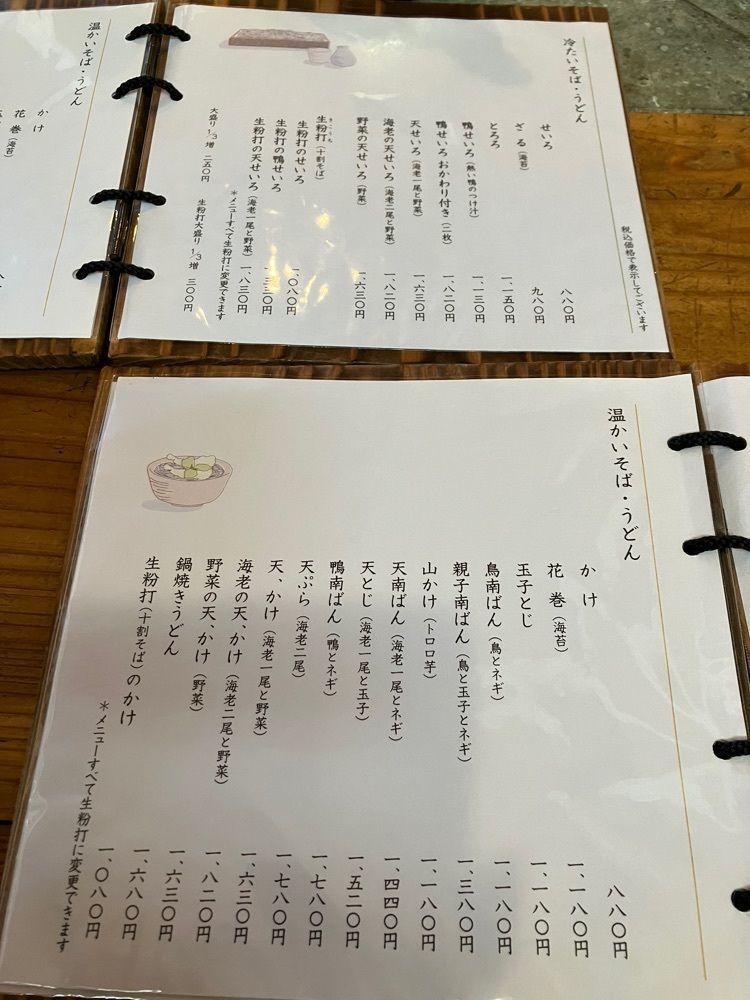 冷たいそば・うどん
税込価格で表示してございます
せいろ 八八〇円
ざる(海苔) 九八〇円
とろろ 一、一五〇円
鴨せいろ(熱い鴨のつけ汁) 一、一三〇円
鴨せいろ おかわり付き(二枚) 一、八二〇円
天せいろ(海老一尾と野菜) 一、六三〇円
海老の天せいろ(海老二尾と野菜) 一、八二〇円
野菜の天せいろ(野菜) 一、六三〇円
生粉打(十割そば)
きこうち
生粉打のせいろ 一、〇八〇円
生粉打の鴨せいろ 一、三三〇円
生粉打の天せいろ(海老一尾と野菜) 一、八三〇円
＊メニューすべて生粉打に変更できます
大盛り1/3増 二五〇円
生粉打大盛り1/3増 三〇〇円
温かいそば・うどん
かけ
花巻(海苔)
温かいそば・うどん
かけ 八八〇円
花巻(海苔) 一、一八〇円
玉子とじ 一、一八〇円
鳥南ばん(鳥とネギ) 一、一八〇円
親子南ばん(鳥と玉子とネギ) 一、三八〇円
山かけ(トロロ芋) 一、一八〇円
天南ばん(海老一尾とネギ) 一、四四〇円
天とじ(海老一尾と玉子) 一、五二〇円
鴨南ばん(鴨とネギ) 一、七八〇円
天ぷら(海老二尾) 一、七八〇円
天、かけ(海老一尾と野菜) 一、六三〇円
海老の天、かけ(海老二尾と野菜) 一、八二〇円
野菜の天、かけ(野菜) 一、六三〇円
鍋焼きうどん 一、六八〇円
生粉打(十割そば)のかけ 一、〇八〇円
＊メニューすべて生粉打に変更できます